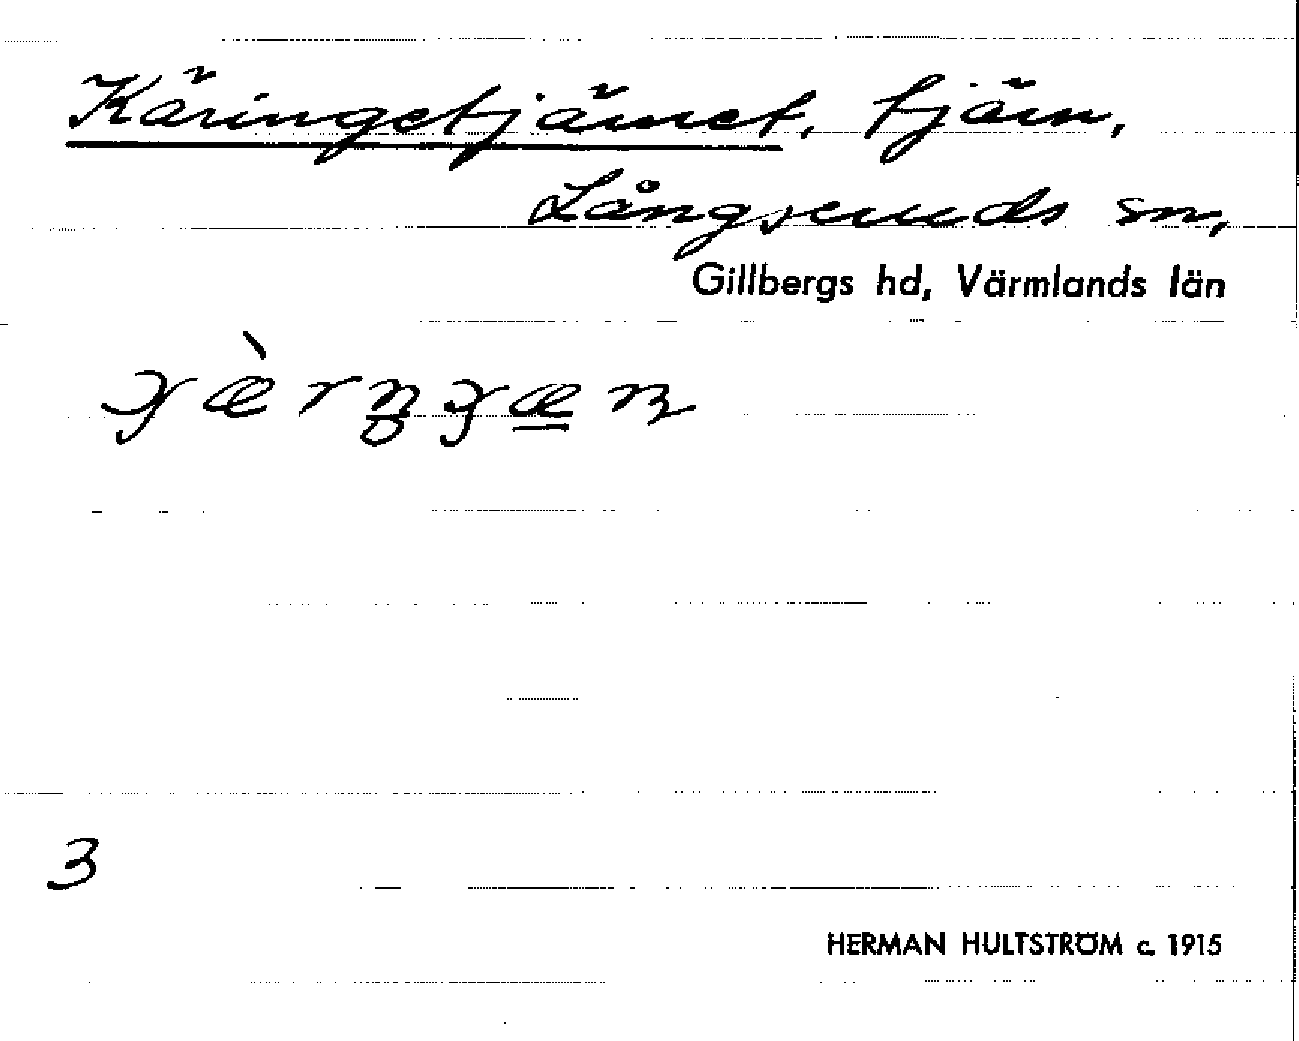 Käringetjärnet, tjärn,
Långseruds sn,
Gillbergs hd, Värmlands län
3
HERMAN HULTSTRÖM c. 1915